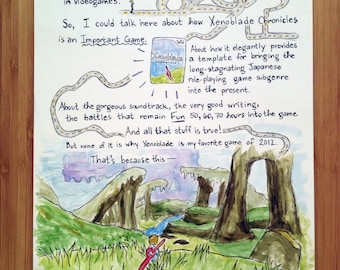 in videogames.
So, I could talk here about how Xenoblade Chronicles
is an Important Game.
About how it elegantly provides
a template for bringing the
long-stagnating Japanese
role-playing game subgenre
into the present.
About the gorgeous soundtrack, the very good writing,
the battles that remain Fun 50, 60, 70 hours into the game.
And all that stuff is true!
But none of it is why Xenoblade is my favorite game of 2012.
That's because this —